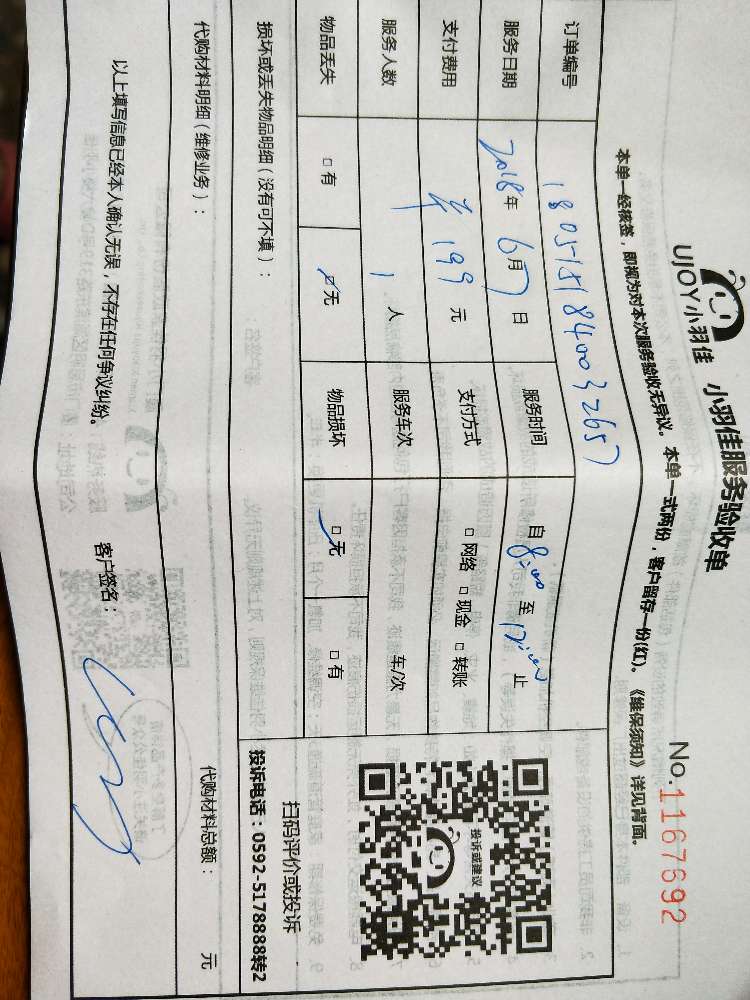 UJOY小羽佳 小羽佳服务验收单
No.1167692
本单一经核签，即视为对本次服务验收无异议。本单一式两份，客户留存一份(红)。《维保须知》详见背面。
订单编号 1805151840032657
服务日期 2018年 6月7日 服务时间 自 8:00 至 12:00 止
支付费用 ¥199 元 支付方式 □网络 □现金 □转账
服务人数 1 人 服务车次 车/次
物品丢失 □有 □无 物品损坏 □无 □有
投诉或建议
扫码评价或投诉
投诉电话：0592-5178888转2
损坏或丢失物品明细（没有可不填）：
代购材料明细（维修业务）： 代购材料总额： 元
以上填写信息已经本人确认无误，不存在任何争议纠纷。 客户签名：